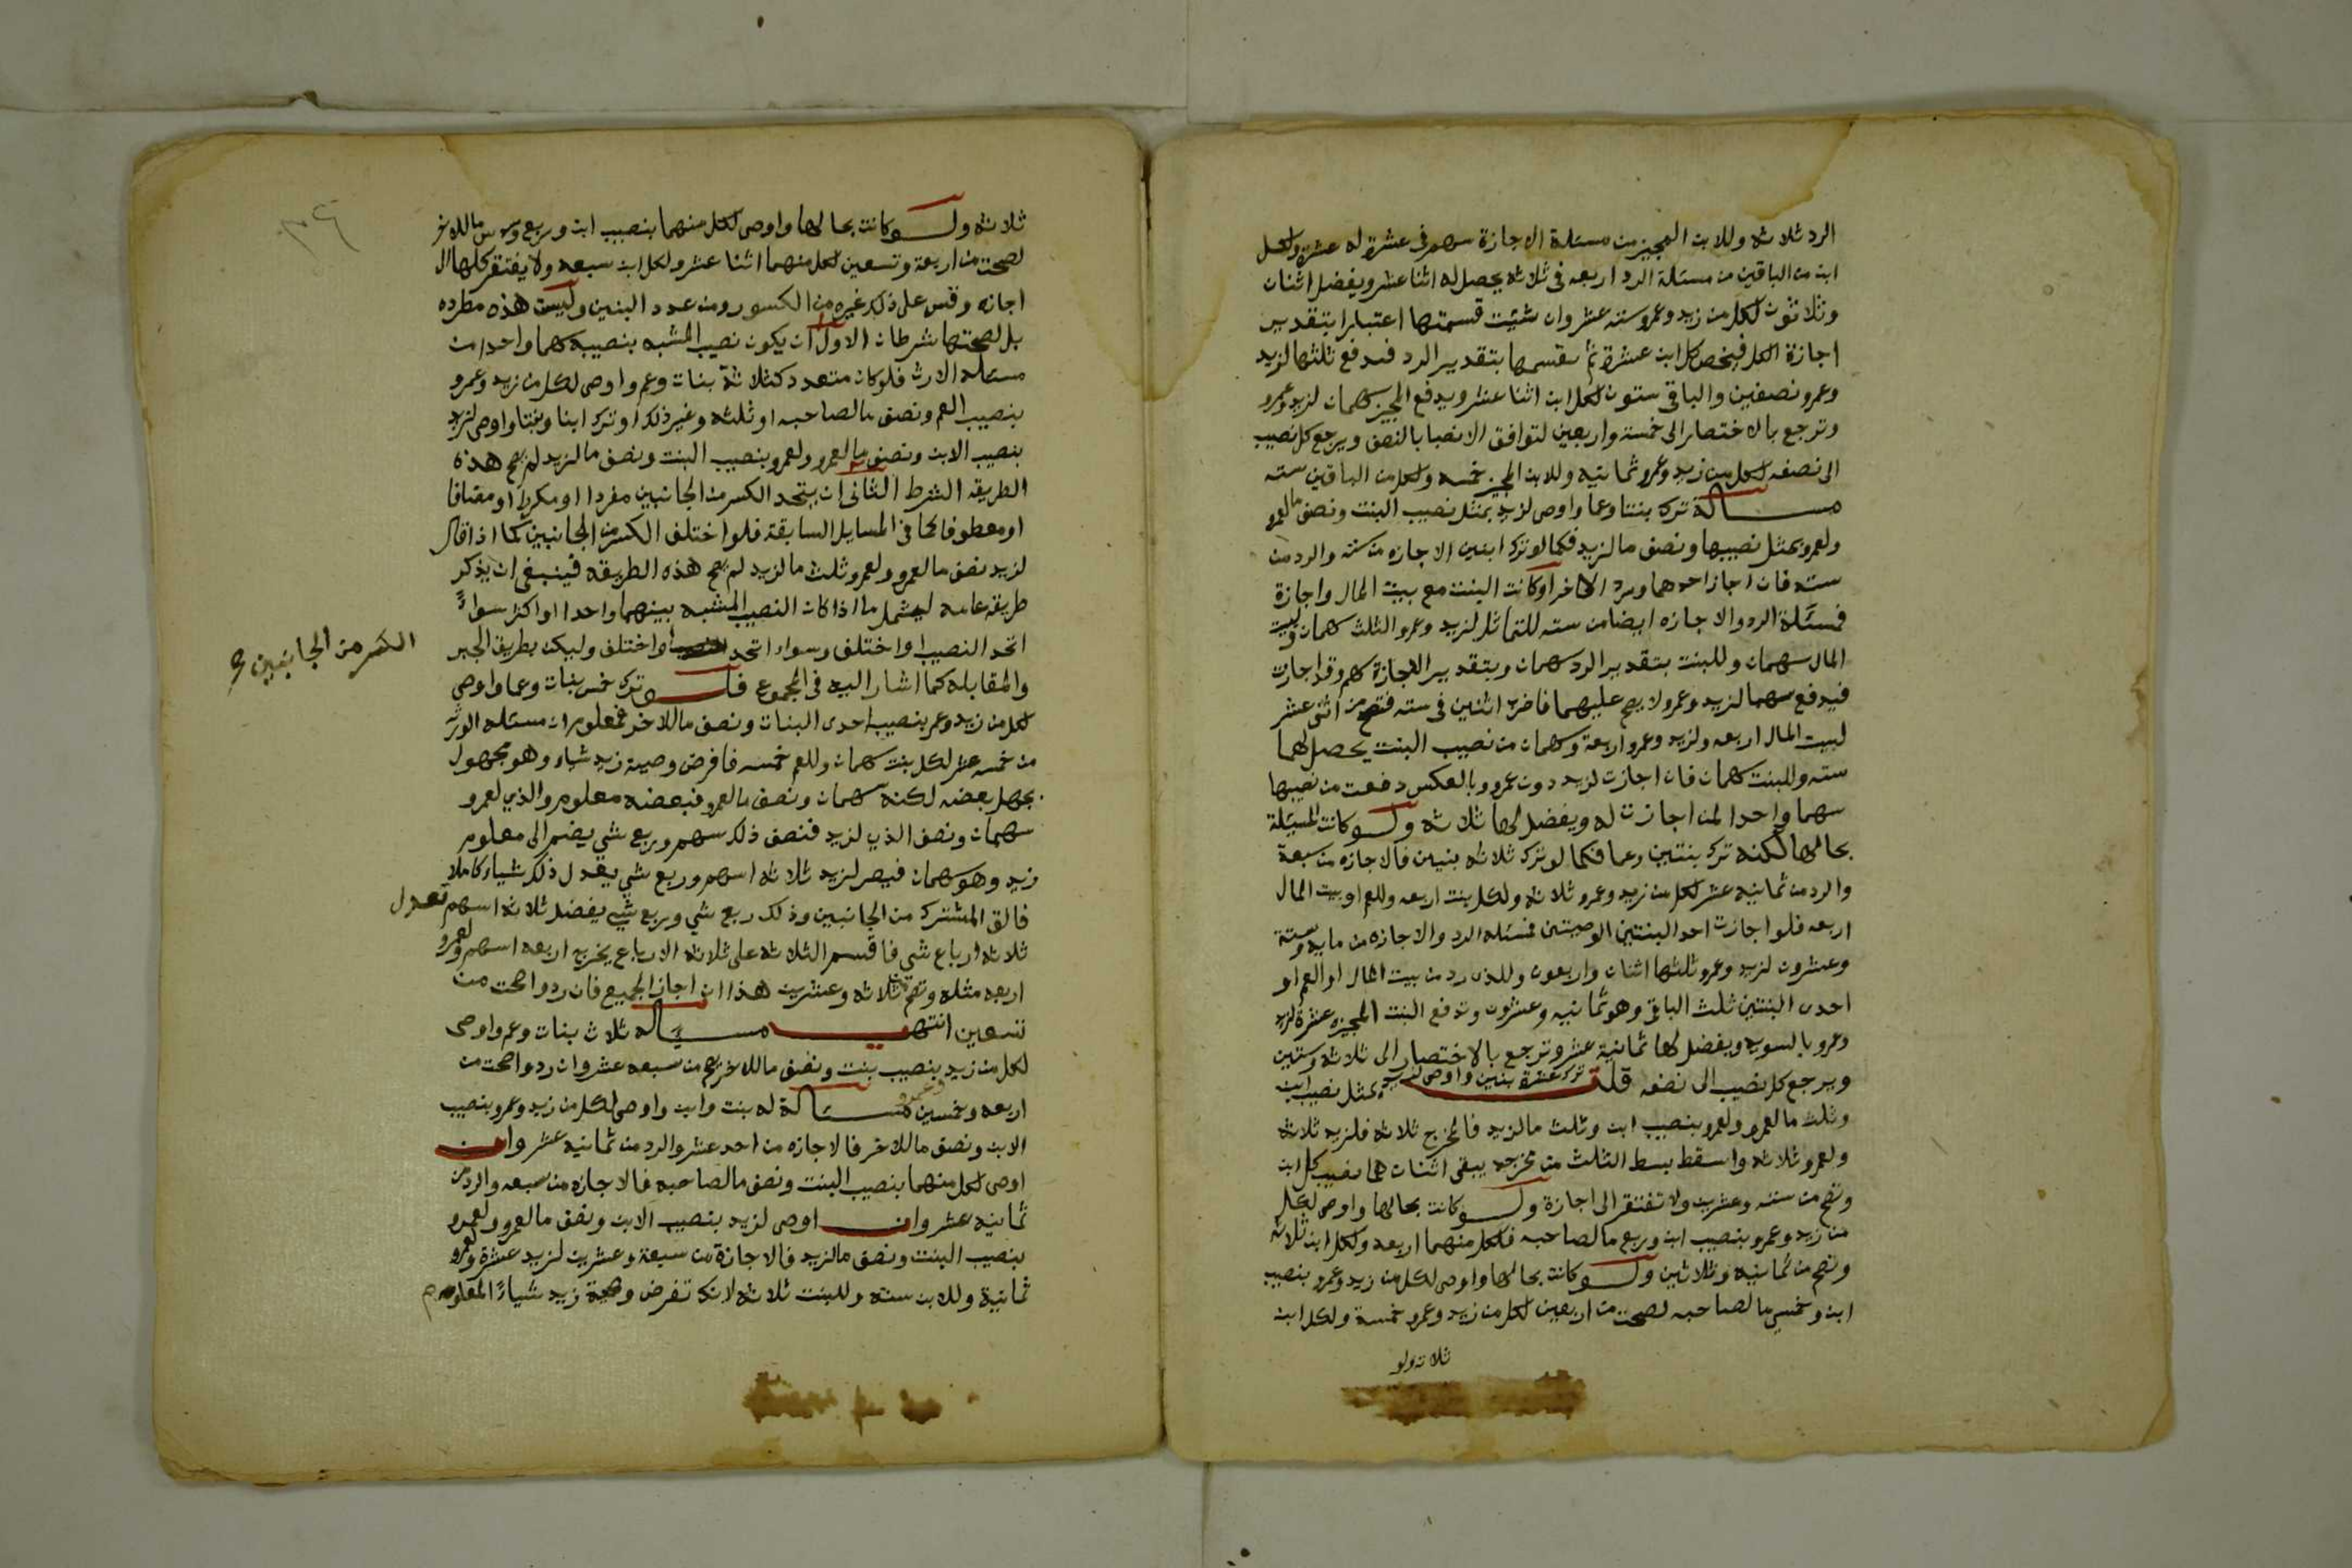 الرد ثلاثة وللابن المجيز من مسئلة الاجازة سهم في عشرة له عشرة ولكل
ابن من الباقين من مسئلة الرد اربعه في ثلاثه يحصل له اثنا عشر ويفضل اثنان
وثلاثون لكل من زيد وعمرو سته عشر وان شئت قسمتها اعتبارا بتقدير
اجازة الكل فيخص كل ابن عشرة ثم نقسمها بتقدير الرد فندفع ثلثها لزيد
وعمرو نصفين والباقي ستون لكل ابن اثنا عشر ويدفع المجيز سهمان لزيد وعمرو
وترجع بالاختصار الى خمسة واربعين لتوافق الانصبا بالنصف ويرجع كل نصيب
الى نصفه لكل من زيد وعمرو ثمانيه وللابن المجيز خمسه ولكل من الباقين سته
مسالة ترك بنتا وعما واوصى لزيد بمثل نصيب البنت ونصف ما لعمرو
ولعمرو بمثل نصيبها ونصف ما لزيد فكما لو ترك ابنين الاجازه من سته والرد من
سته فان اجاز احدهما ورد الاخر او كانت البنت مع بيت المال واجازة
فمسئلة الرد والاجازه ايضا من سته للتماثل لزيد وعمرو الثلث سهمان ولبيت
المال سهمان وللبنت بتقدير الرد سهمان وبتقدير الاجازة سهم وقد اجازت
فيدفع سهما لزيد وعمرو لا يصح عليهما فاضرب اثنين في سته فتصح من اثنى عشر
لبيت المال اربعه ولزيد وعمرو اربعة وسهمان من نصيب البنت يحصل لهما
سته وللبنت سهمان فان اجازت لزيد دون عمرو وبالعكس دفعت من نصيبها
سهما واحدا لمن اجازت له ويفضل لها ثلاثه ولو كانت المسئلة
بحالها لكنه ترك بنتين وعما فكما لو ترك ثلاثه بنين فالاجازه من سبعة
والرد من ثمانيه عشر لكل من زيد وعمرو ثلاثه ولكل بنت اربعه وللعم او بيت المال
اربعه فلو اجازت احد البنتين الوصيتين فمسئله الرد والاجازه من مايه وستة
وعشرون لزيد وعمرو ثلثها اثنان واربعون وللذي رد من بيت المال او العم او
احدى البنتين ثلث الباقي وهو ثمانيه وعشرون وتدفع البنت المجيزه عشرة لزيد
وعمرو بالسويه ويفضل لها ثمانية عشر وترجع بالاختصار الى ثلاثه وستين
ويرجع كل نصيب الى نصفه قلت ترك عشرة بنين واوصى لزيد بمثل نصيب ابن
وثلث ما لعمرو ولعمرو بنصيب ابن وثلث ما لزيد فالمخرج ثلاثه فلزيد ثلاثه
ولعمرو ثلاثه واسقط بسط الثلث من مخرجه يبقى اثنان هما نصيب كل ابن
وتصح من سته وعشرين ولا تفتقر الى اجازة ولو كانت بحالها واوصى لكل
من زيد وعمرو بنصيب ابن وربع ما لصاحبه فلكل منهما اربعه ولكل ابن ثلاثه
وتصح من ثمانيه وثلاثين ولو كانت بحالها واوصى لكل من زيد وعمرو بنصيب
ابن وخمس ما لصاحبه لصحت من اربعين لكل من زيد وعمرو خمسة ولكل ابن
ثلاثه ولو
ثلاثه ولو كانت بحالها واوصى لكل منهما بنصيب ابن وربع وسدس ما للاخر
لصحت من اربعة وتسعين لكل منهما اثنا عشر ولكل ابن سبعه ولا يفتقر كلها الى
اجازه وقس على ذلك غيره من الكسور ومن عدد البنين وليست هذه مطرده
بل لصحتها شرطان الاول ان يكون نصيب المشبه بنصيبه سهما واحدا من
مسئله الارث فلو كان متعدد كثلاثة بنات وعم واوصى لكل من زيد وعمرو
بنصيب العم ونصف ما لصاحبه او ثلثه وغير ذلك او ترك ابنا وبنتا واوصى لزيد
بنصيب الابن ونصف ما لعمرو ولعمرو بنصيب البنت ونصف ما لزيد لم تصح هذه
الطريقه الشرط الثاني ان يتحد الكسر من الجانبين مفردا او مكررا او مضافا
او معطوفا كما في المسايل السابقة فلو اختلف الكسر من الجانبين كما اذا قال
لزيد نصف ما لعمرو ولعمرو ثلث ما لزيد لم تصح هذه الطريقه فينبغي ان يذكر
طريقه عامه ليشمل ما اذا كان النصيب المشبه بينهما واحدا او اكثر سواءً
اتحد النصيب او اختلف وسواء اتحد او اختلف وليكن بطريق الجبر
الكسر من الجانبين صح
والمقابله كما اشار اليه في المجموع فلو ترك خمس بنات وعما واوصى
لكل من زيد وعمر بنصيب احدى البنات ونصف ما للاخر فمعلوم ان مسئله الورثه
من خمسه عشر لكل بنت سهمان وللعم خمسه فافرض وصيه زيد شياء وهو مجهول
يجهل بعضه لكنه سهمان ونصف ما لعمرو فبعضه معلوم والذي لعمرو
سهمان ونصف الذي لزيد فنصف ذلك سهم وربع شي يضم الى معلوم
زيد وهو سهمان فيصر لزيد ثلاثه اسهم وربع شي يعدل ذلك شياء كاملا
فالق المشترك من الجانبين وذلك ربع شي وربع شي يفضل ثلاثه اسهم تعدل
ثلاثه ارباع شي فاقسم الثلاثه على ثلاثه الارباع يخرج اربعه اسهم ولعمرو
اربعه مثله وتصح من ثلاثه وعشرين هذا ان اجاز الجميع فان ردوا صحت من
تسعين انتهى مسئاله ثلاث بنات وعم واوصى
لكل من زيد وعمرو بنصيب بنت ونصف ما للاخر يصح من سبعه عشر وان ردوا صحت من
اربعه وخمسين مسئالة له بنت وابن واوصى لكل من زيد وعمرو بنصيب
الابن ونصف ما للاخر فالاجازه من احد عشر والرد من ثمانيه عشر وان
اوصى لكل منهما بنصيب البنت ونصف ما لصاحبه فالاجازه من سبعه والرد من
ثمانيه عشر وان اوصى لزيد بنصيب الابن ونصف ما لعمرو ولعمرو
بنصيب البنت ونصف ما لزيد فالاجازة من سبعة وعشرين لزيد عشرة ولعمرو
ثمانية وللابن سته وللبنت ثلاثه لانك تفرض وصية زيد شياءً المعلوم